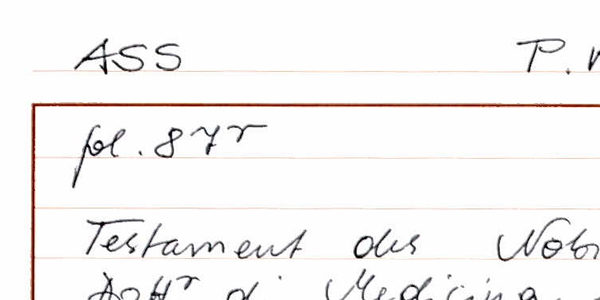 ASS P.
fol. 87r
Testament des Nob
Dottr di Medicina